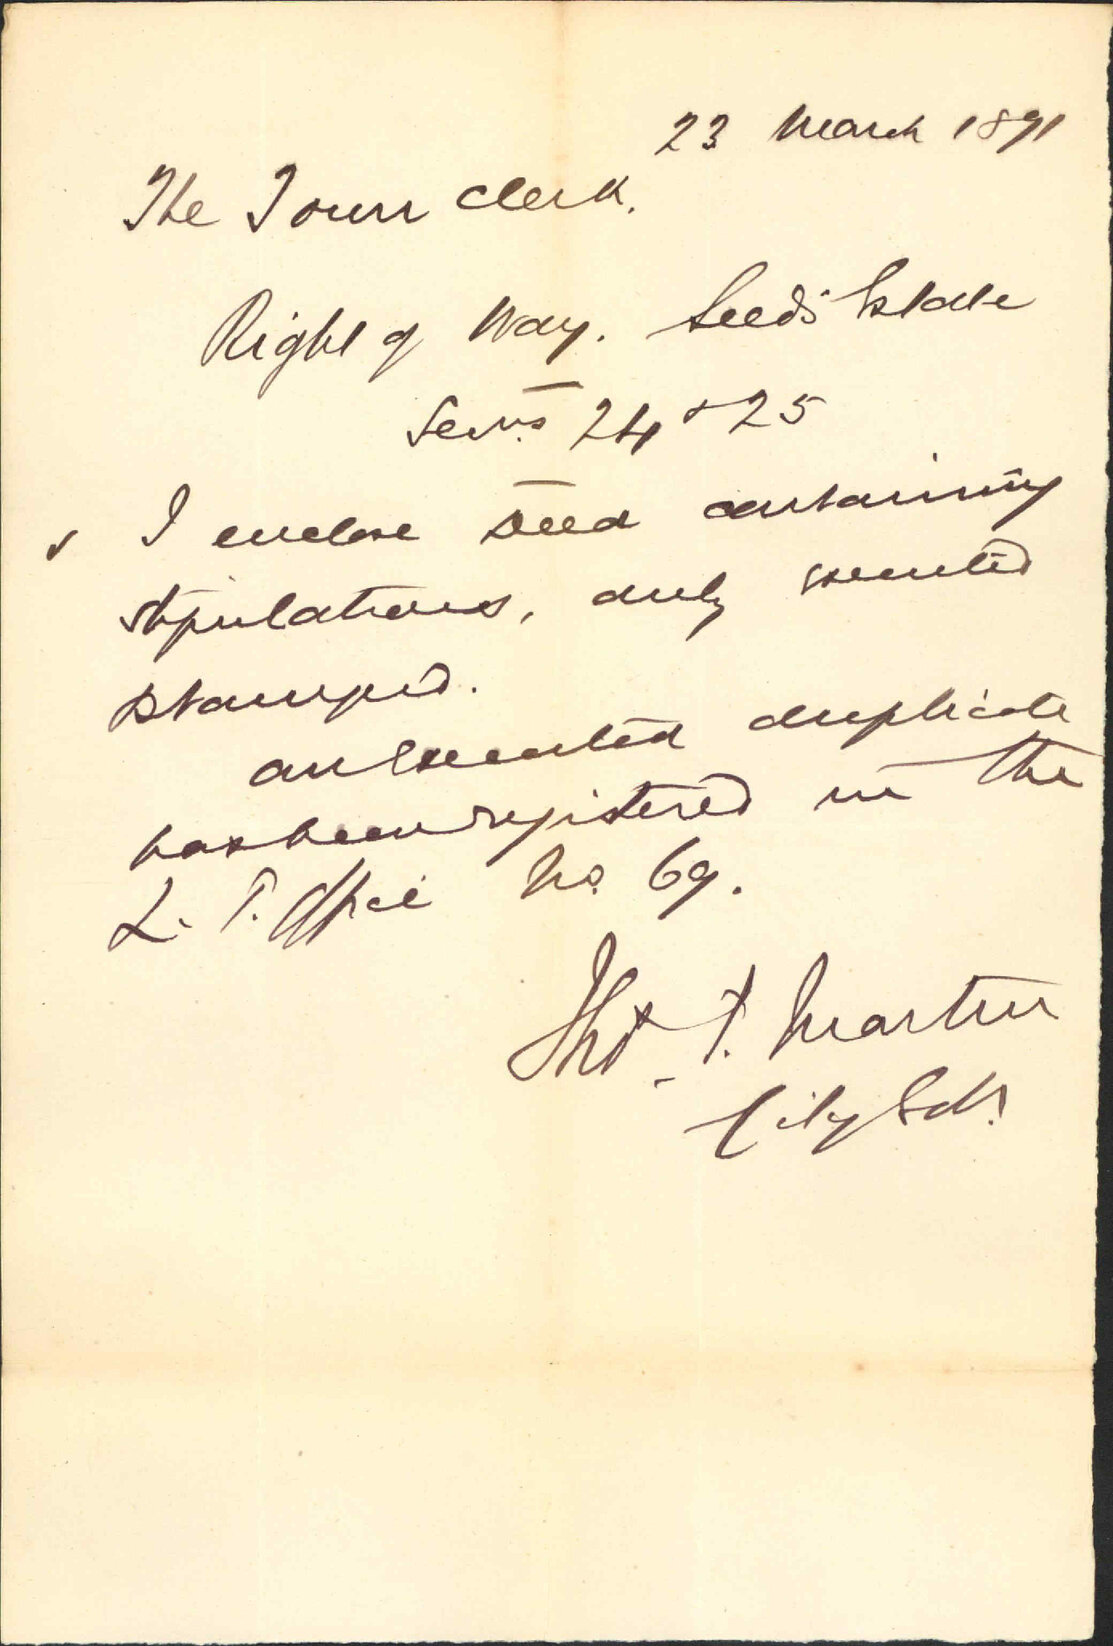 23 March 1891
The Town Clerk.
Right of Way. Seed's Estate
Secns 24 & 25
✓ I enclose Deed containing
stipulations, duly executed
stamped.
an Executed duplicate
has been registered in the
L. T. Office No. 69.
Thos. T. Martin
City Solr.